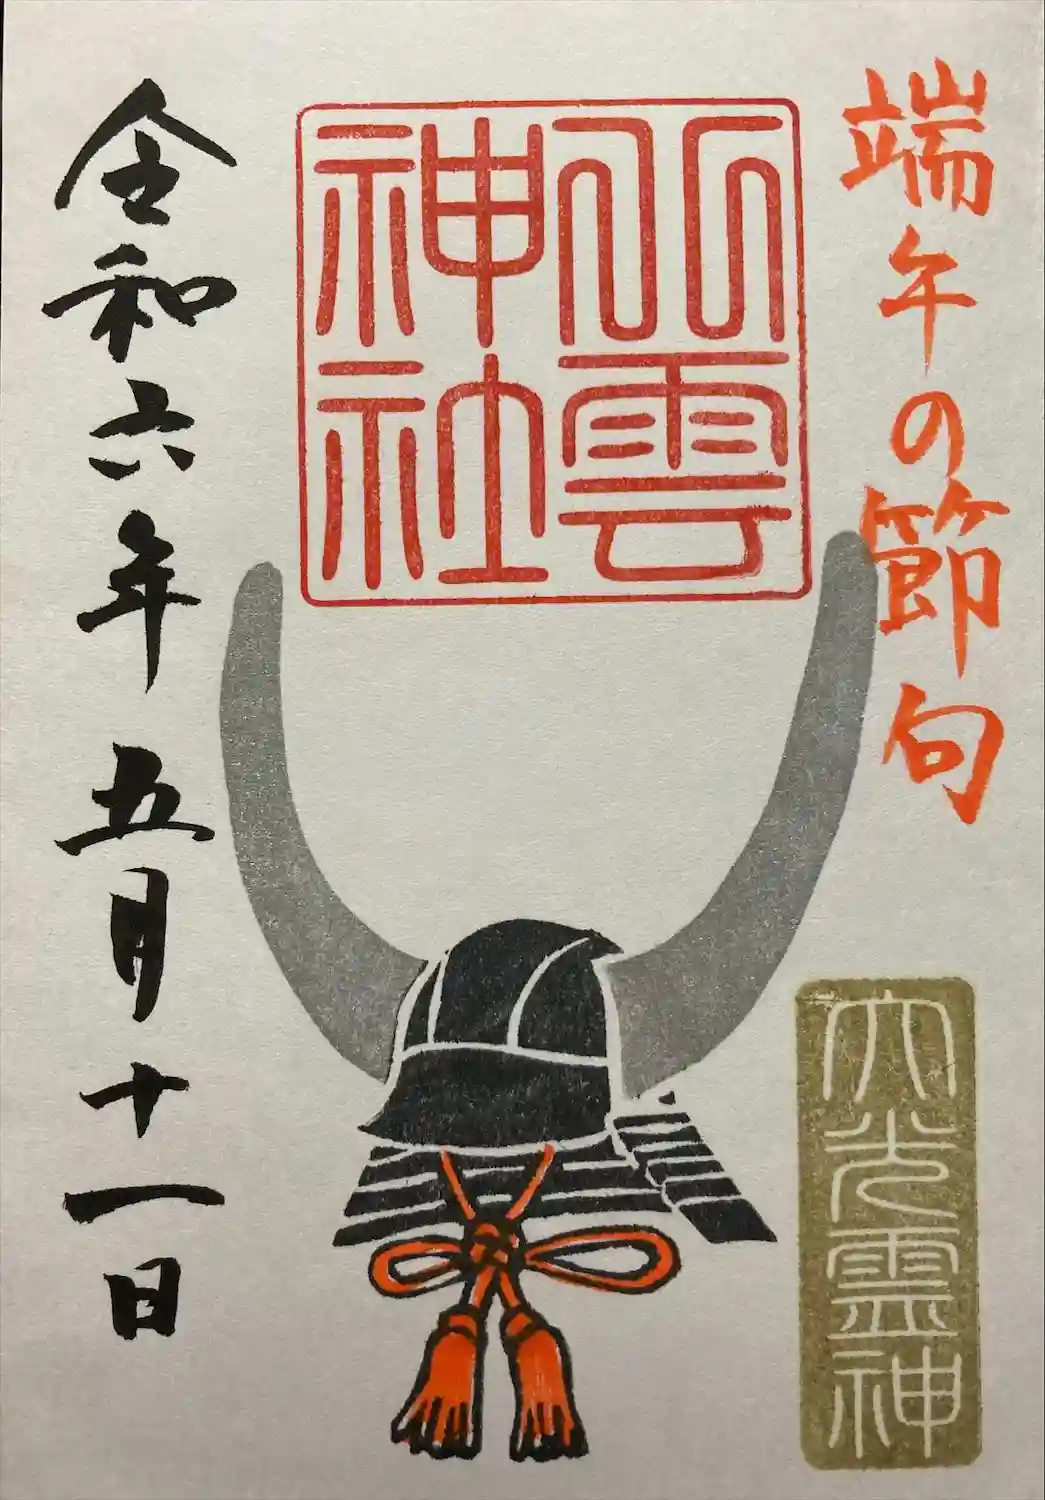 端午の節句
八雲
神社
大光霊神
令和六年五月十一日